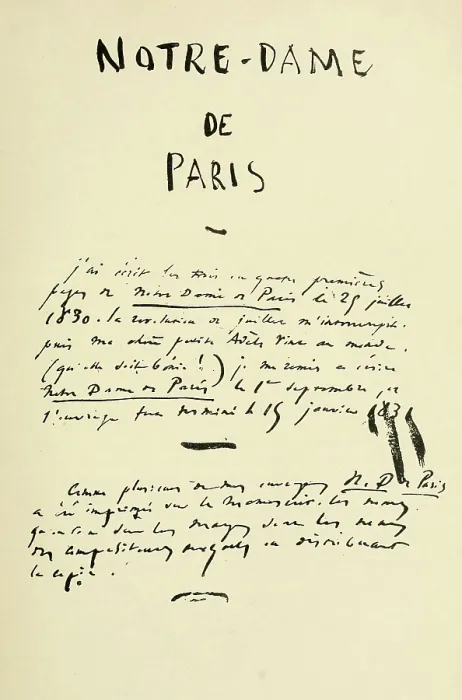 NOTRE-DAME
DE
PARIS
j'ai écrit les trois ou quatre premières
pages de Notre Dame de Paris le 25 juillet
1830. la révolution de juillet m'interrompit.
puis ma chère petite Adèle vint au monde.
(qu'elle soit bénie!) je me remis à écrire
Notre Dame de Paris le 1er septembre, et
l'ouvrage fut terminé le 15 janvier 1831
Comme plusieurs de mes ouvrages N. D de Paris
a été imprimé sur le manuscrit. les noms
qu'on dans les marges sont les noms
des compositeurs auxquels on distribuait
la copie.